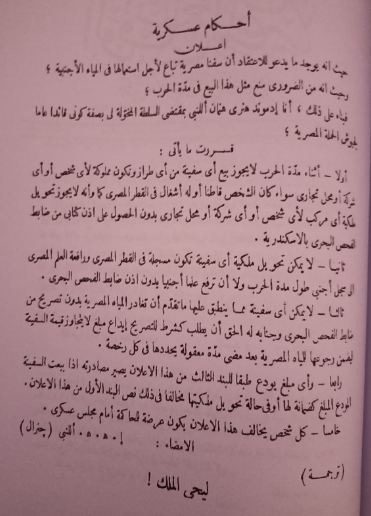 أحكام عسكرية
اعلان
حيث انه يوجد ما يدعو للاعتقاد أن سفنا مصرية تباع لأجل استعمالها فى المياه الأجنبية ؛
وحيث انه من الضرورى منع مثل هذا البيع فى مدّة الحرب ؛
فبناء على ذلك ، أنا إدموند هنرى هنمان أللنبي بمقتضى السلطة المخوّلة لى بصفة كونى قائدا عاما
لجيوش الحملة المصرية ؛
قــررت ما يأتى :
أولا – أثناء مدّة الحرب لا يجوز بيع أى سفينة من أى طراز وتكون مملوكة لأى شخص أو أى
شركة أو محل تجارى سواء كان الشخص قاطنا أو له أشغال فى القطر المصرى كما وأنه لا يجوز تحويل
ملكية أى مركب لأى شخص أو أى شركة أو محل تجارى بدون الحصول على اذن كتابى من ضابط
الفحص البحرى بالاسكندرية .
ثانيا – لا يمكن تحويل ملكية أى سفينة تكون مسجلة فى القطر المصرى ورافعة العلم المصرى
الى مسجل أجنبي طول مدة الحرب ولا أن ترفع علما أجنبيا بدون اذن ضابط الفحص البحرى .
ثالثا – لا يمكن أى سفينة مما ينطبق عليها ما تقدّم أن تغادر المياه المصرية بدون تصريح من
ضابط الفحص البحرى وجنابه له الحق أن يطلب كشرط للتصريح إيداع مبلغ لا يتجاوز قيمة السفينة
ليضمن رجوعها للمياه المصرية بعد مضى مدّة معقولة يحددها فى كل رخصة .
رابعا – وأى مبلغ يودع طبقا للبند الثالث من هذا الاعلان يصير مصادرته اذا بيعت السفينة
المودع المبلغ كضمانة لها أو فى حالة تحويل ملكيتها مخالفا فى ذلك نص البند الأول من هذا الاعلان .
خامسا – كل شخص يخالف هذا الاعلان يكون عرضة للمحاكمة أمام مجلس عسكرى .
الامضاء : إ . ه . ه . أللنبي (جنرال)
(ترجمة)
ليحى الملك !